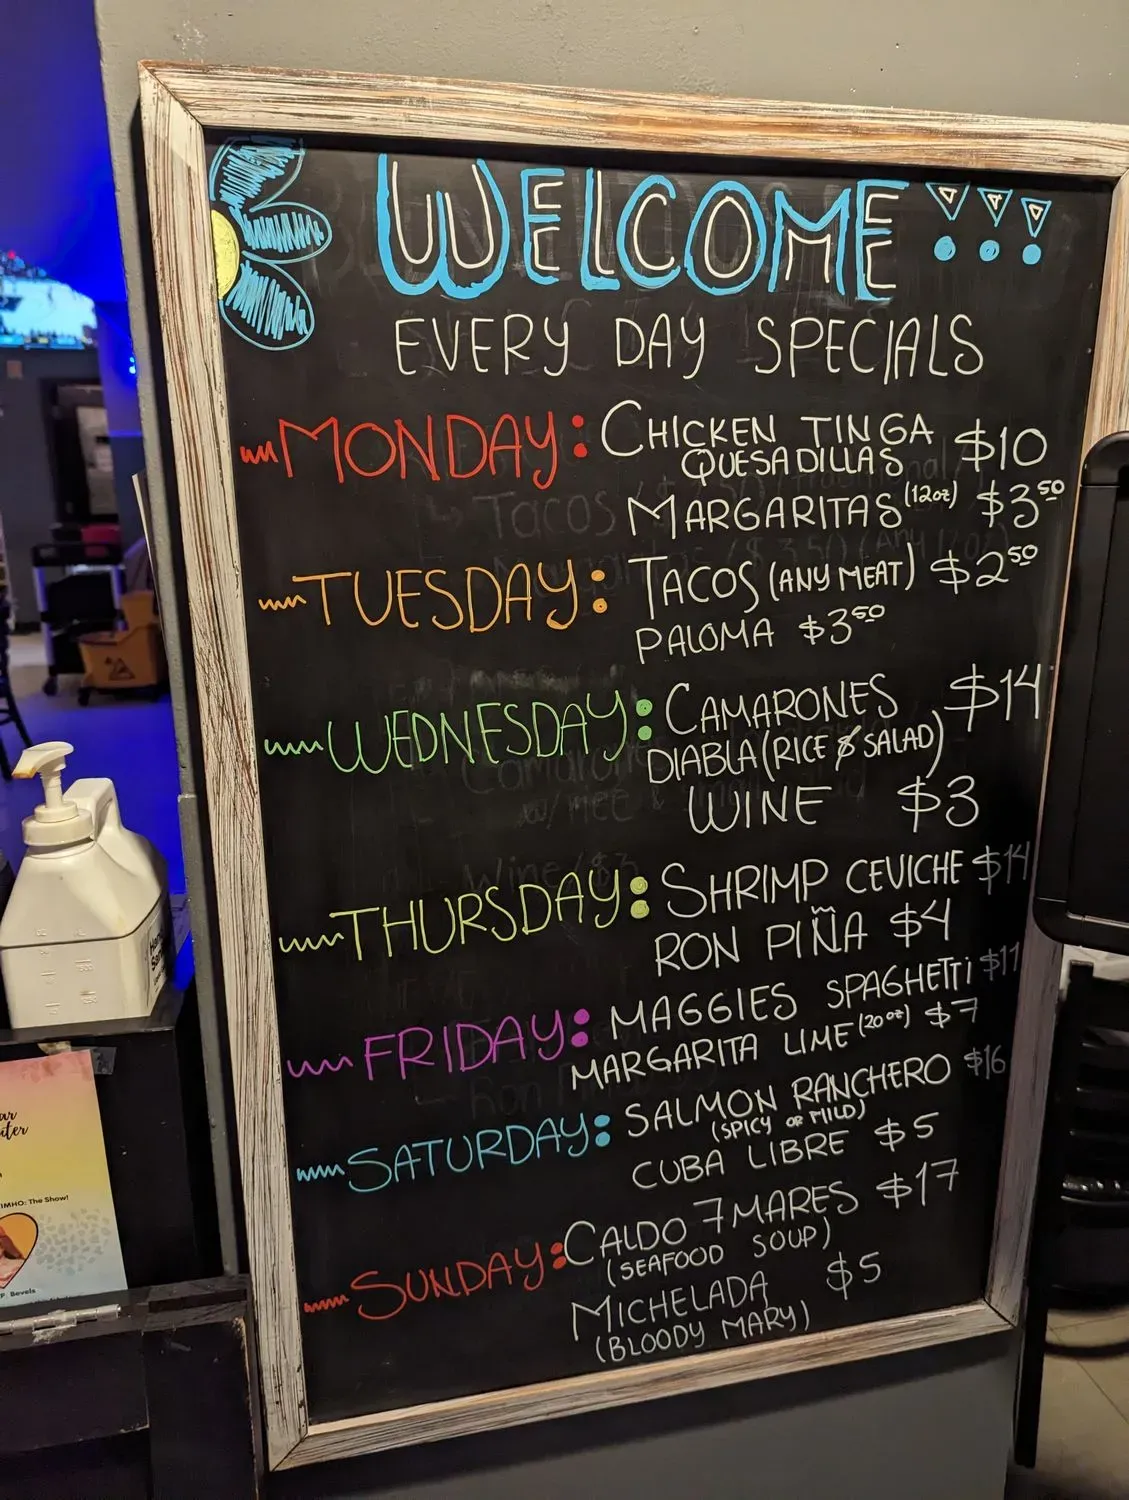 WELCOME!!!
EVERY DAY SPECIALS
MONDAY: CHICKEN TINGA
QUESADILLAS $10
MARGARITAS (12oz) $3.50
TUESDAY: TACOS (ANY MEAT) $2.50
PALOMA $3.50
WEDNESDAY: CAMARONES $14
DIABLA (RICE & SALAD)
WINE $3
THURSDAY: SHRIMP CEVICHE $14
RON PIÑA $4
FRIDAY: MAGGIES SPAGHETTI $11
MARGARITA LIME (20oz) $7
SATURDAY: SALMON RANCHERO $16
(SPICY OR MILD)
CUBA LIBRE $5
SUNDAY: CALDO 7 MARES $17
(SEAFOOD SOUP)
MICHELADA $5
(BLOODY MARY)
IMHO: The Show!
P. Bevels